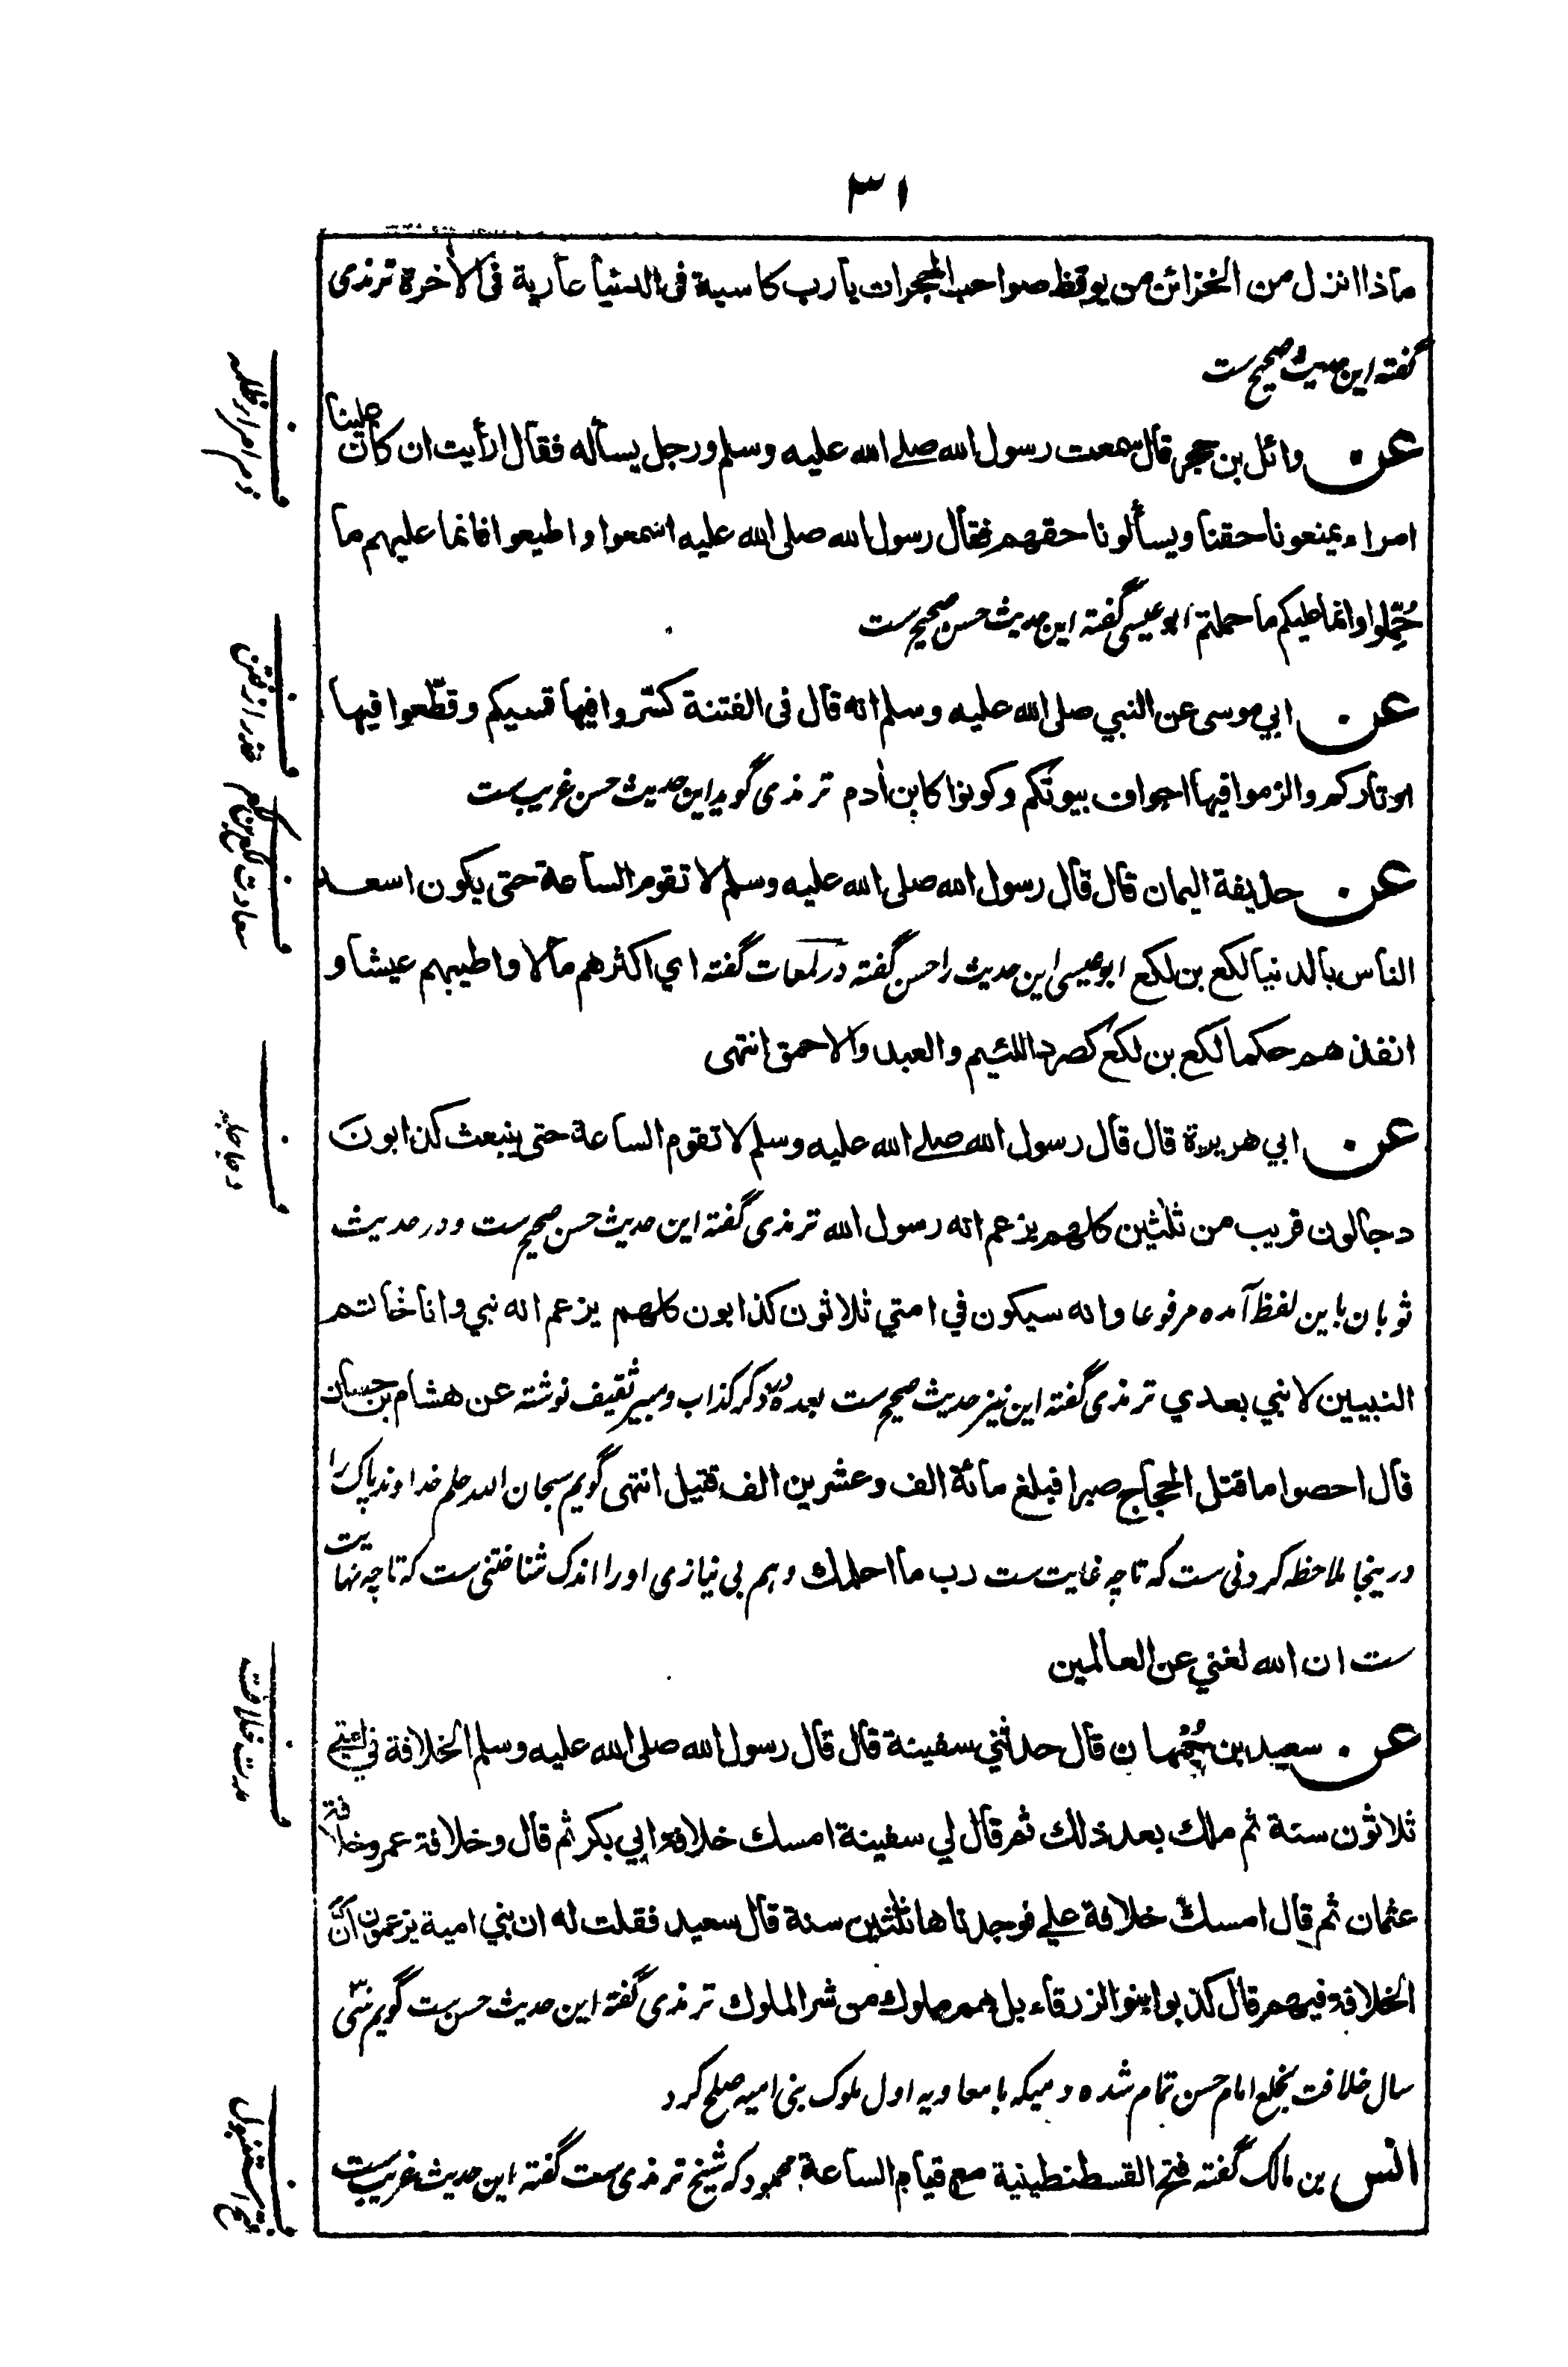 ٣١
ماذا انزل من الخزائن من يوقظ صواحب الحجرات يا رب كاسية فى الدنيا عارية فى الآخرة ترمذى
گفته اين حديث صحيح ست
عن وائل بن حجر قال سمعت رسول الله صلے الله عليه وسلم ورجل يسأله فقال ارأيت ان كان علينا
امراء يمنعونا حقنا ويسألونا حقهم فقال رسول الله صلى الله عليه اسمعوا واطيعوا فانما عليهم ما
حُمِّلوا وانما عليكم ما حملتم ابو عيسى گفته اين حديث حسن صحيح ست
عن ابي موسى عن النبي صلى الله عليه وسلم انه قال فى الفتنة كسّروا فيها قسيكم وقطّعوا فيها
اوتاركم والزموا فيها اجواف بيوتكم وكونوا كابن اٰدم ترمذى گويد اين حديث حسن غريب ست
عن حذيفة اليمان قال قال رسول الله صلى الله عليه وسلم لا تقوم الساعة حتى يكون اسعد
الناس بالدنيا لكع بن لكع ابو عيسى اين حديث را حسن گفته در لمعات گفته اي اكثرهم مالا واطيبهم عيشا و
انفذهم حكما لكع بن لكع كصرد اللئيم والعبد والاحمق انتهى
عن ابي هريرة قال قال رسول الله صلے الله عليه وسلم لا تقوم الساعة حتى ينبعث كذابون
دجالون قريب من ثلٰثين كلهم يزعم انه رسول الله ترمذى گفته اين حديث حسن صحيح ست ودر حديث
ثوبان باين لفظ آمده مرفوعا وانه سيكون في امتي ثلاثون كذابون كلهم يزعم انه نبي وانا خاتم
النبيين لا نبي بعدي ترمذى گفته اين نيز حديث صحيح ست بعده در ذكر كذاب ومبير ثقيف نوشته عن هشام بن حسان
قال احصوا ما قتل الحجاج صبرا فبلغ مائة الف وعشرين الف قتيل انتهى گويم سبحان الله حلم خداوند پاک را
درينجا ملاحظه كردنى ست كه تا چه غايت ست رب ما احلمك وهم بى نيازى او را اندک شناختنى ست كه تا چه نهايت
ست ان الله لغني عن العالمين
عن سعيد بن جُمْهان قال حدثني سفينة قال قال رسول الله صلى الله عليه وسلم الخلافة في امتي
ثلاثون سنة ثم ملك بعد ذلك ثم قال لي سفينة امسك خلافة ابي بكر ثم قال وخلافة عمر وخلافة
عثمان ثم قال امسك خلافة علے فوجدناها ثلٰثين سنة قال سعيد فقلت له ان بني امية يزعمون انّ
الخلافة فيهم قال كذبوا بنوا الزرقاء بل هم ملوك من شر الملوك ترمذى گفته اين حديث حسن ست گويم سى
سال خلافت بخلع امام حسن تمام شده دميكه با معاويه اول ملوک بنى اميه صلح كرد
انس بن مالک گفته فتح القسطنطينية مع قيام الساعة محمود كه شيخ ترمذى ست گفته اين حديث غريب ست
ذم امراء ظلمه
حذر از فتن
سعادت لكع بن لكع
دجاجله
مدت خلافت
فتح استنبول